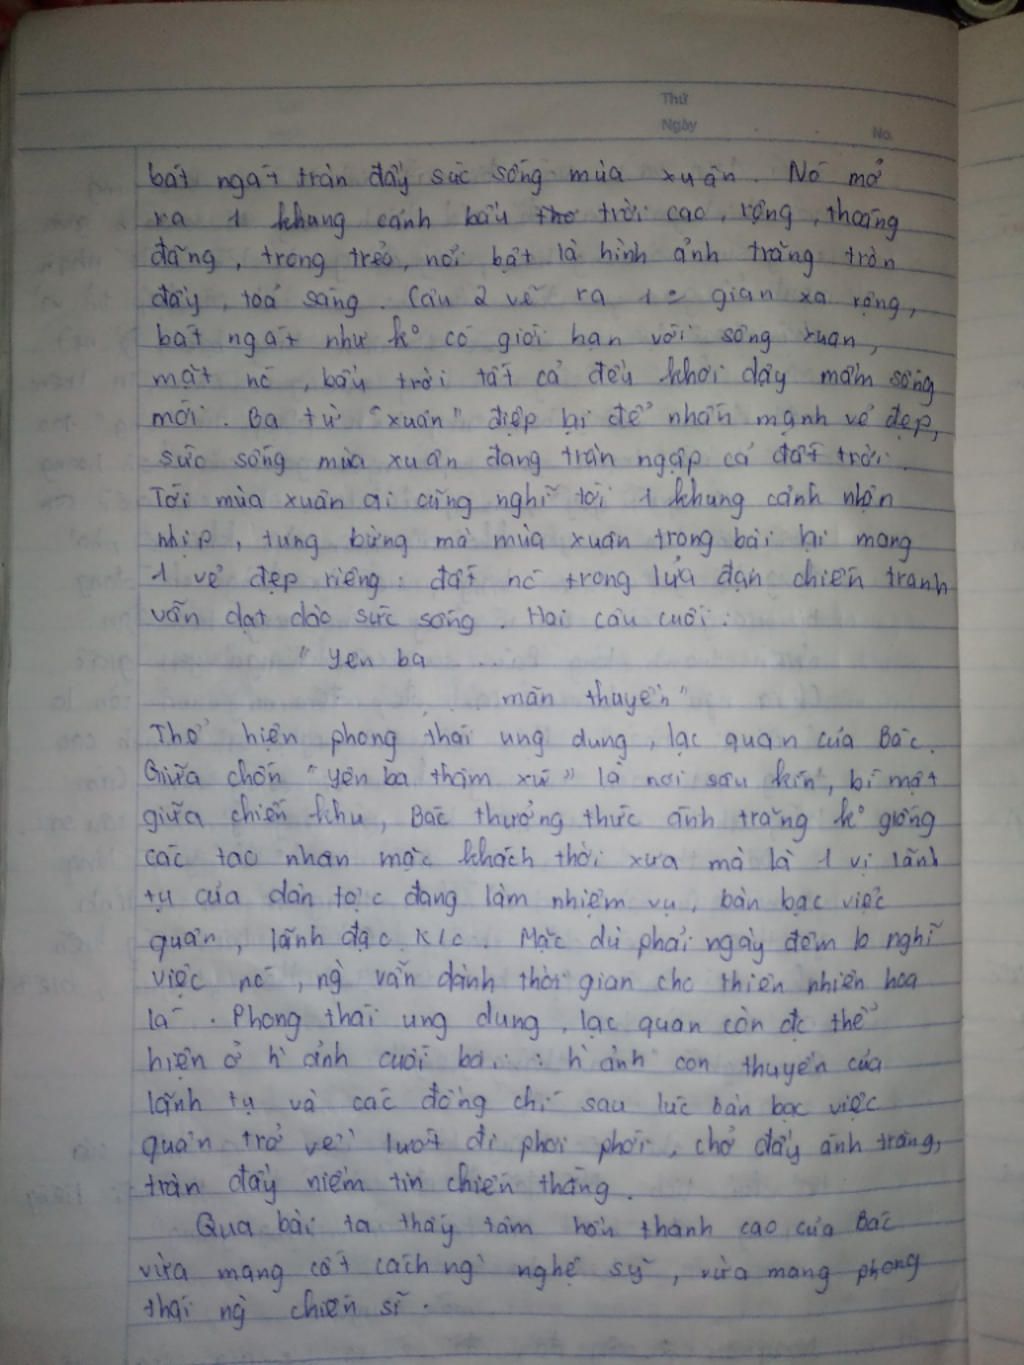 Thứ
Ngày
No.
bát ngát tràn đầy sức sống mùa xuân. Nó mở
ra 1 khung cảnh bầu trời cao, rộng, thoáng
đãng, trong trẻo, nổi bật là hình ảnh trăng tròn
đầy, toả sáng. Câu 2 vẽ ra 1 gian xa rộng,
bát ngát như ko có giới hạn với sông xuân,
mặt nc, bầu trời tất cả đều khơi dậy mầm sống
mới. Ba từ "xuân" điệp lại để nhấn mạnh vẻ đẹp,
sức sống mùa xuân đang tràn ngập cả đất trời.
Tới mùa xuân ai cũng nghĩ tới 1 khung cảnh nhộn
nhịp, tưng bừng mà mùa xuân trong bài lại mang
1 vẻ đẹp riêng: đất nc trong lửa đạn chiến tranh
vẫn dạt dào sức sống. Hai câu cuối:
"Yên ba ...
mãn thuyền"
Thể hiện phong thái ung dung, lạc quan của Bác.
Giữa chốn "yên ba thâm xứ" là nơi sâu kín, bí mật
giữa chiến khu, Bác thưởng thức ánh trăng ko giống
các tao nhân mặc khách thời xưa mà là 1 vị lãnh
tụ của dân tộc đang làm nhiệm vụ, bàn bạc việc
quân, lãnh đạo K/c. Mặc dù phải ngày đêm lo nghĩ
việc nc, ng vẫn dành thời gian cho thiên nhiên hoa
lá. Phong thái ung dung, lạc quan còn đc thể
hiện ở h ảnh cuối bài: h ảnh con thuyền của
lãnh tụ và các đồng chí sau lúc bàn bạc việc
quân trở về lướt đi phơi phới, chở đầy ánh trăng,
tràn đầy niềm tin chiến thắng.
Qua bài ta thấy tâm hồn thanh cao của Bác
vừa mang cốt cách ng nghệ sỹ, vừa mang phong
thái ng chiến sĩ.